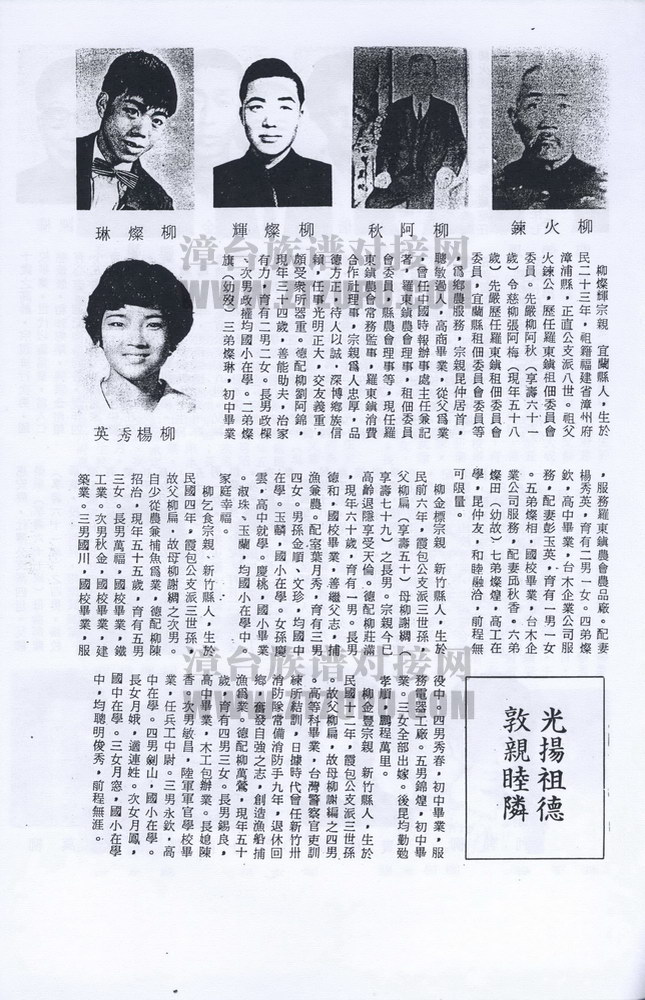 柳火鍊
柳阿秋
柳燦輝
柳燦琳
柳楊秀英
柳燦輝宗親　宜蘭縣人，生於
民二十三年，祖籍福建省漳州府
漳浦縣，正直公支派八世。祖父
火鍊公，歷任羅東鎮租佃委員會
委員。先嚴柳阿秋（享壽六十一
歲）令慈柳張阿梅（現年五十八
歲）先嚴歷任羅東鎮租佃委員會
委員，宜蘭縣租佃委員會委員等
，為鄉農服務，宗親昆仲居首，
聰敏過人，高商畢業，從父為業
，曾任中國時報辦事處主任兼記
者，羅東鎮農會理事，租佃委員
會委員，縣農會理事等，現任羅
東鎮農會常務監事，羅東鎮消費
合作社理事，宗親為人忠厚，品
德方正，待人以誠，深博鄉族信
賴，任事光明正大，交友義重，
頗受衆所器重。德配柳劉阿錦，
現年三十四歲，善能助夫，治家
有力，育有二男二女。長男政樑
、次男政撞均國小在學。二弟燦
旗（幼歿）三弟燦琳，初中畢業
，服務羅東鎮農會農品廠。配妻
楊秀英，育有二男一女。四弟燦
欽，高中畢業，台木企業公司服
務，配妻彭玉英，育有一男一女
。五弟燦相，國校畢業，台木企
業公司服務，配妻邱秋香。六弟
燦田（幼故）七弟燦煌，高工在
學，昆仲友，和睦融洽，前程無
可限量。
柳金標宗親　新竹縣人，生於
民前六年，霞包公支派三世孫，
父柳扁（享壽五十）母柳謝綢（
享壽七十九）之長男。宗親今已
高齡退隱享受天倫。德配柳莊滿
，現年六十歲，育有一男。長男
德和，國校畢業，善繼父志，捕
漁兼農。配室葉月秀，育有三男
四女。男孫金順、文珍，均國中
在學。玉麟，國小在學。女孫慶
雲，高中就學。慶桃，國小畢業
。淑珠、玉蘭，均國小在學中。
家庭幸福。
柳乞食宗親、新竹縣人，生於
民國四年，霞包公支派三世孫，
故父柳扁，故母柳謝綢之次男。
自少從農兼捕魚為業，德配柳陳
招治，現年五十五歲，育有五男
三女。長男萬福，國校畢業，鐵
工業。次男秋金，國校畢業，建
築業。三男國川，國校畢業，服
役中。四男秀春，初中畢業，服
務電器工廠。五男錦煌，初中畢
業。三女全部出嫁。後昆均勤勉
孝順，鵬程萬里。
柳金豐宗親　新竹縣人，生於
民國十二年，霞包公支派三世孫
。故父柳扁，故母柳謝綢之四男
。高等科畢業，台灣警察官吏訓
練所結訓，日據時代曾任新竹卅
消防隊常備消防手九年，退休回
鄉，奮發自強之志，創造漁船捕
漁為業。德配柳萬鶯，現年五十
歲，育有四男三女。長男錫良，
高中畢業，木工包辦業。長媳陳
香。次男敏昌，陸軍軍官學校畢
業，任兵工中尉。三男永欽，高
中在學。四男劍山，國小在學。
長女月娥，適連姓。次女月鳳，
國中在學。三女月窓，國小在學
中，均聰明俊秀，前程無涯。
光揚祖德
敦親睦隣
漳台族谱对接网
漳台族谱对接网